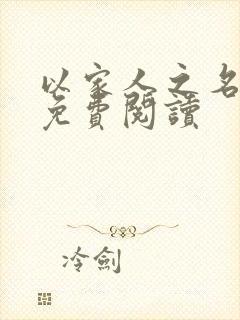 以家人之名
免費閱讀
冷劍